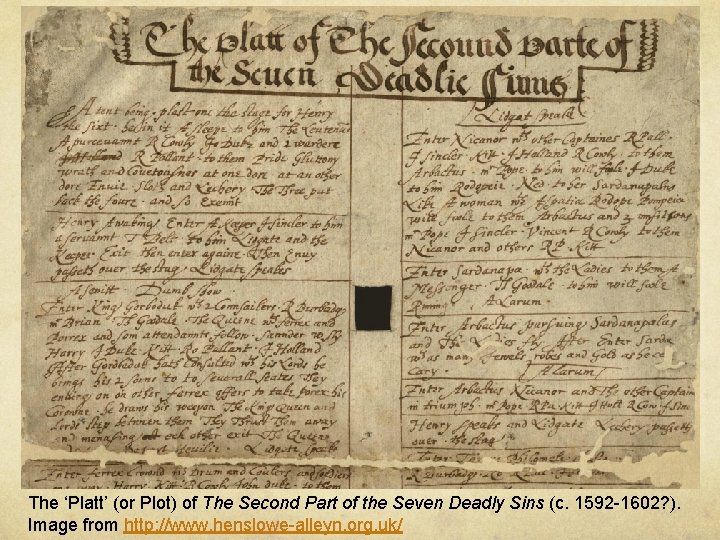 The platt of The Secound parte of
the Seuen Deadlie Sinns
A tent being plast one the stage for Henry
the sixt. he in it A sleepe to him The Leutenant
A purceuaunt R Cowly Jo Duke and 1 wardere
R Pallant. to them Pride Gluttony
Wrath and Couetousnes at one dore at an other
dore Enuie Sloth and Lechery The Three put
back the foure. and so Exeunt
Henry Awaking Enter A Keeper J Sincler to him
a seruaunt T Belt to him Lidgate and the
Keeper Exit then enter againe. Then Enuy
passeth ouer the stag. Lidgate speakes
A senitt Dumb show
Enter King Gorboduk wth 2 Counsailers. R Burbadg
mr Brian. Th Goodale. The Queene wth ferrex and
Porrex and som attendaunts follow. Saunder w sly
Harry J Duke Kitt. Ro Pallant. J Holland
After Gordbeduk hath Consulted wth his Lords he
brings his 2 sonns to to seuerall seates They
enuing on on other ferrex offers to take porrex his
Corowne. he draws his weopon The King Queen and
Lords step between them They Thrust Them away
and menasing ech other exit The Queene
Lidgate speaks
Enter ferrex Crownd wth drum and Coulers and soldiers
Harry Kitt R Cowly John duke. to them
Lidgat speake
Enter Nicanor wth other Captaines R Pall.
J sincler. Kitt. J Holland R Cowly. to them
Arbactus. mr Pope. to him will foole. J Duke
to him Rodopeie. Ned. to her Sardanapalus
Like A woman wth Aspatia Rodope Pompeia
will foole to them Arbactus and 2 musitions
mr Pope J sincler. Vincent R Cowly to them
Nicanor and others R P. Kitt
Enter Sardanapa. wth the Ladies to them A
Messenger. Th Goodale. to him will foole
Runing A Larum.
Enter Arbactus pursuing Sardanapalus
and The Ladies fly. After Enter Sarda
wth as many Jewels robes and Gold as he ca
cary. A larum
Enter Arbactus Nicanor and The other Captains
in triumph. mr Pope. R Pa. Kitt J Holl R Cow. J Sinc
Henry speaks and Lidgate Lechery passeth
ouer the stag
The ‘Platt’ (or Plot) of The Second Part of the Seven Deadly Sins (c. 1592 -1602?).
Image from http://www.henslowe-alleyn.org.uk/